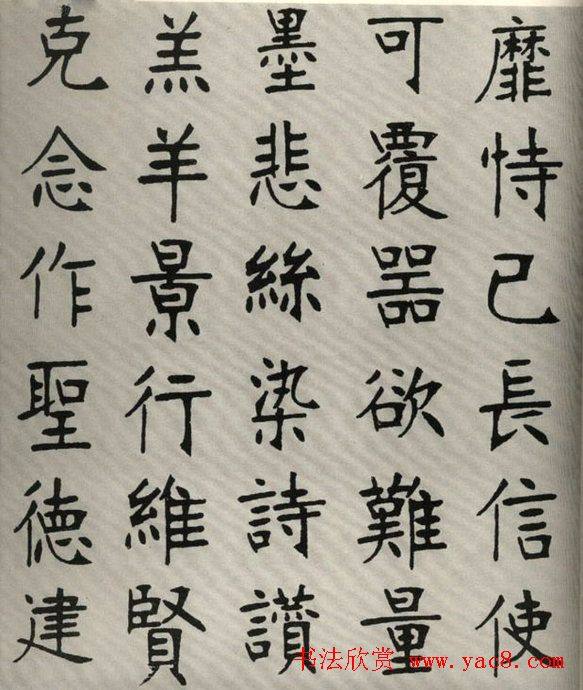 靡恃己長信使
可覆器欲難量
墨悲絲染詩讚
羔羊景行維賢
克念作聖德建
书法欣赏 www.yac8.com